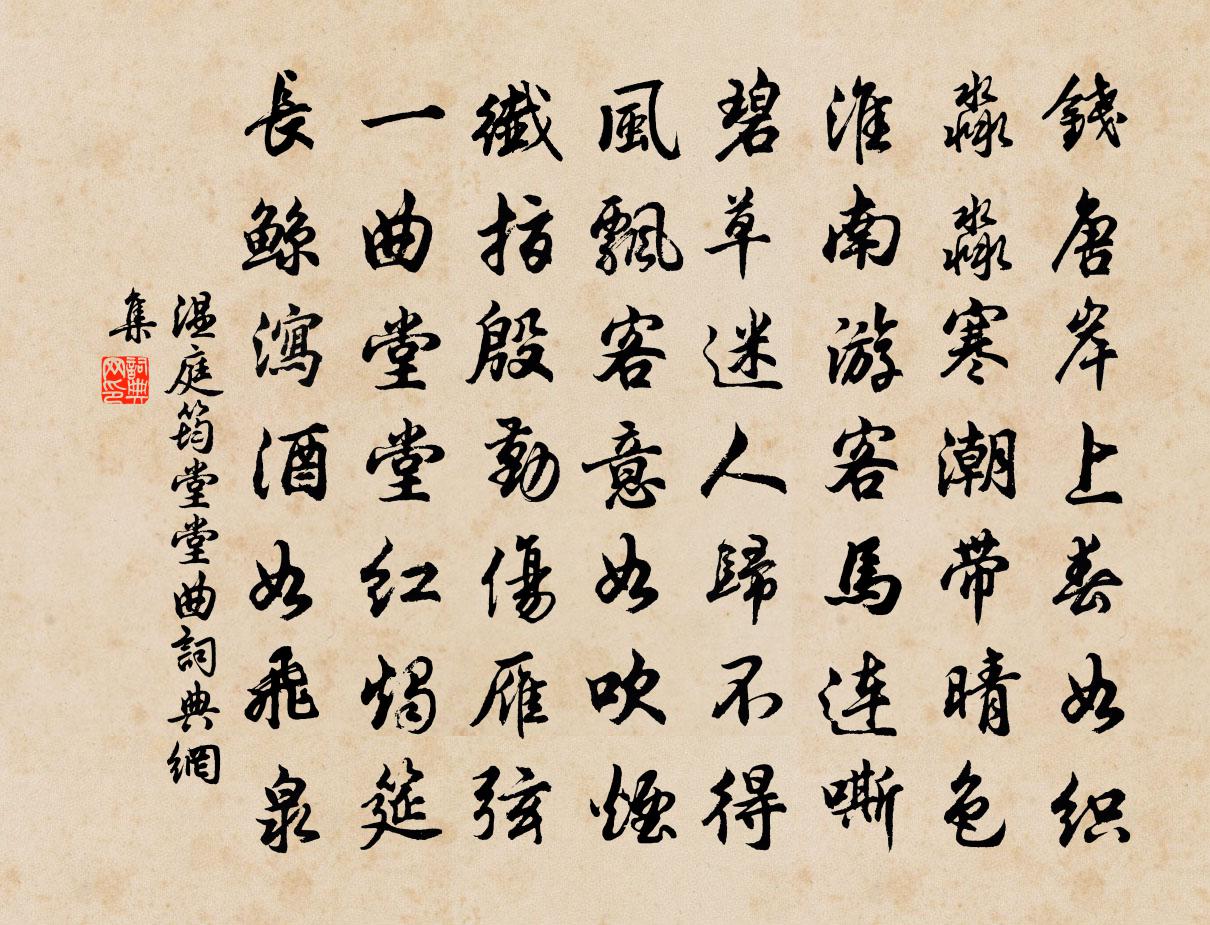 錢唐岸上春如织
淼淼寒潮带晴色
淮南游客馬连嘶
碧草迷人歸不得
風飄客意如吹煙
纖指殷勤傷雁弦
一曲堂堂红燭筵
長鲸瀉酒如飛泉
温庭筠堂堂曲詞典網
集
詞典
网印